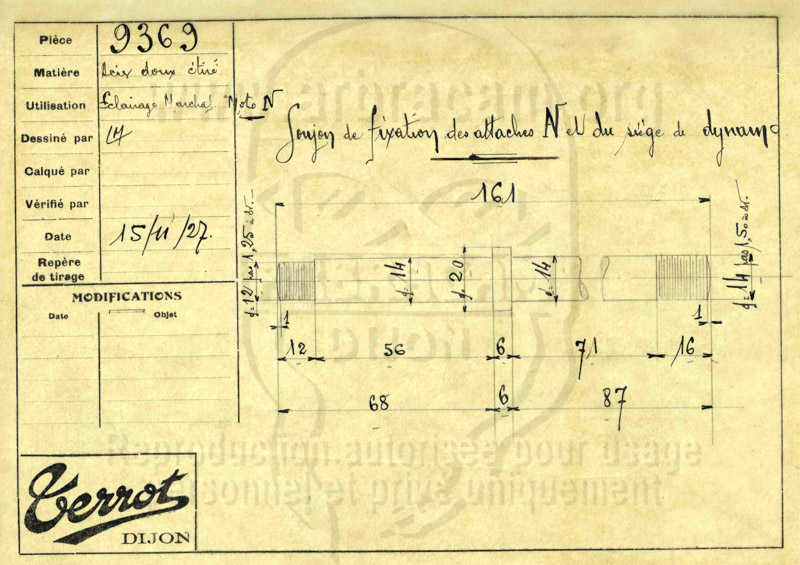 Pièce 9369
Matière Acier doux étiré
Utilisation Eclairage Marchal Moto N
Dessiné par
Calqué par
Vérifié par
Date 15/11/27.
Repère de tirage
MODIFICATIONS
Date Objet
Goujon de fixation des attaches N et du siège de dynamo
161
d=12 pas 1,25 à dr.
d=14
d=20
d=14
d=14 pas 1,50 à dr.
1
1
12 56 6 71 16
68 6 87
Terrot
DIJON
Reproduction autorisée pour usage
personnel et privé uniquement